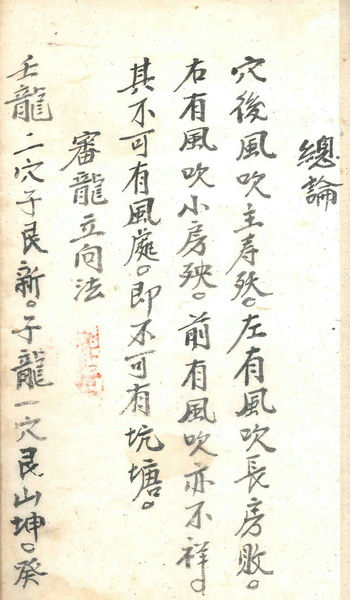 總論
穴後風吹主寿殀。左有風吹長房敗。
右有風吹小房殃。前有風吹亦不祥。
其不可有風處。即不可有坑塘。
審龍立向法
壬龍二穴子艮新。子龍一穴艮山坤。癸